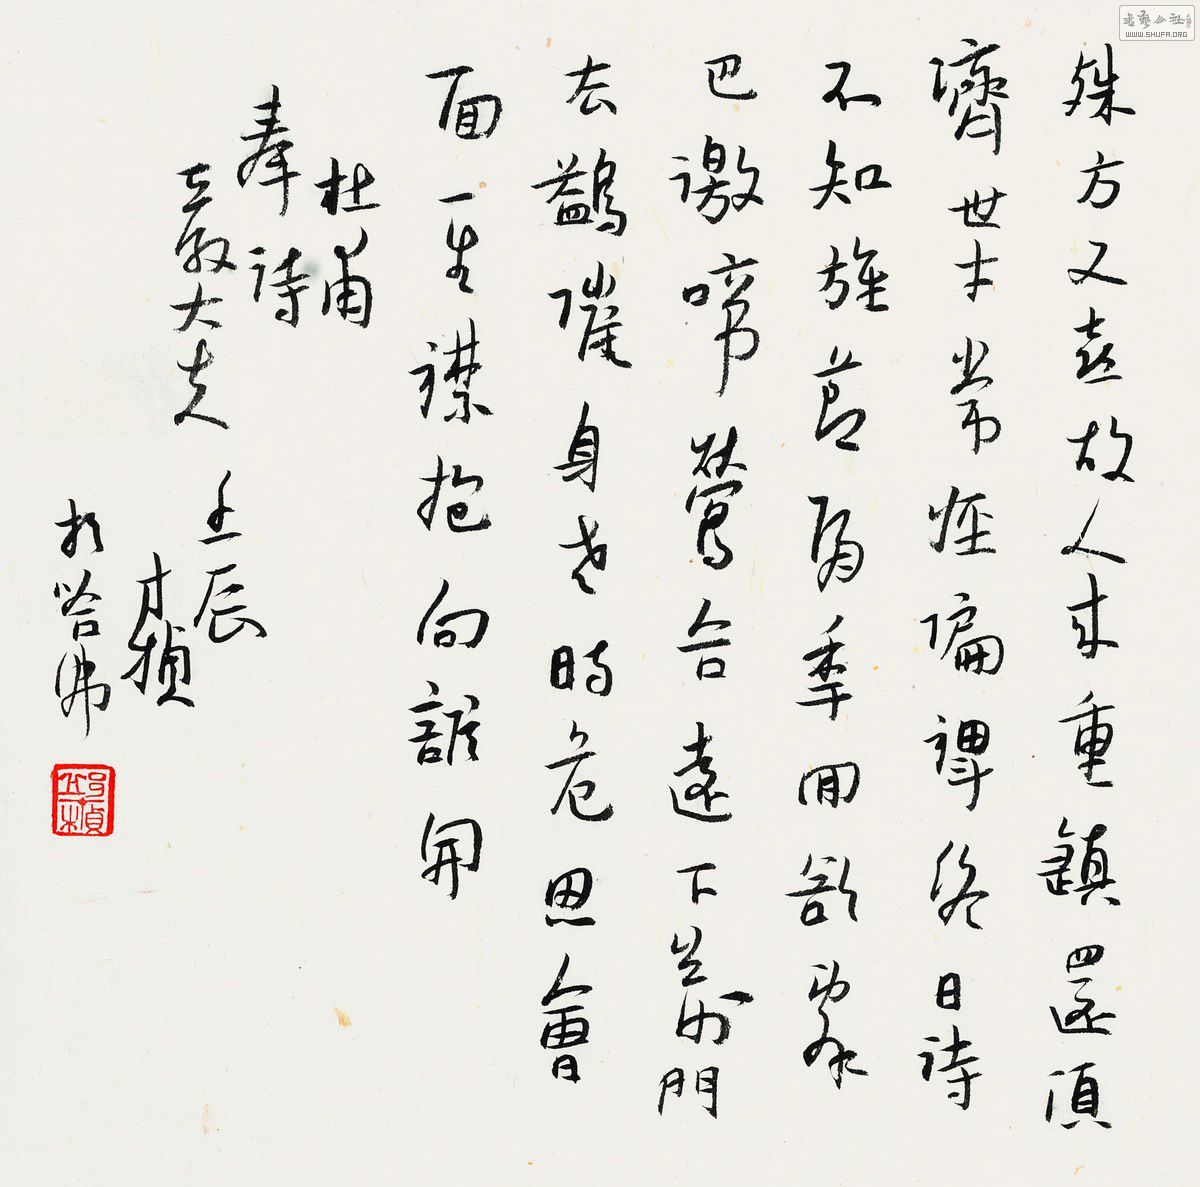 殊方又喜故人來重鎮還須
濟世才常怪偏裨終日待
不知旌節隔年回欲辭
巴徼啼鶯合遠下荊門
去鷁催身老時危思會
面一生襟抱向誰開
杜甫
奉待
嚴大夫
壬辰
於哈佛
WWW.SHUFA.ORG